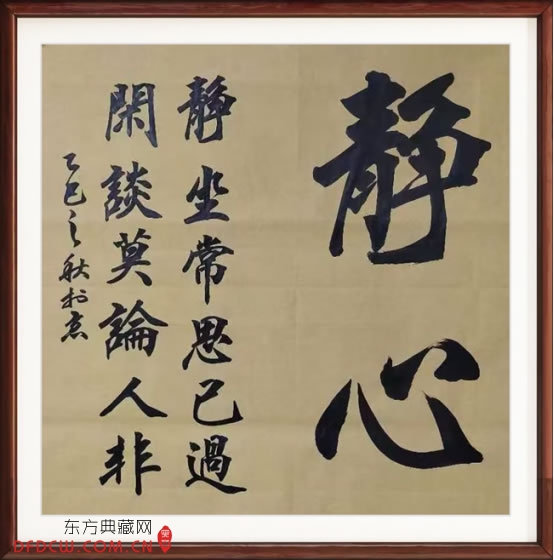 静心
静坐常思己過
閑談莫論人非
乙巳之秋於京
东方典藏网
DFDCW.COM.CN